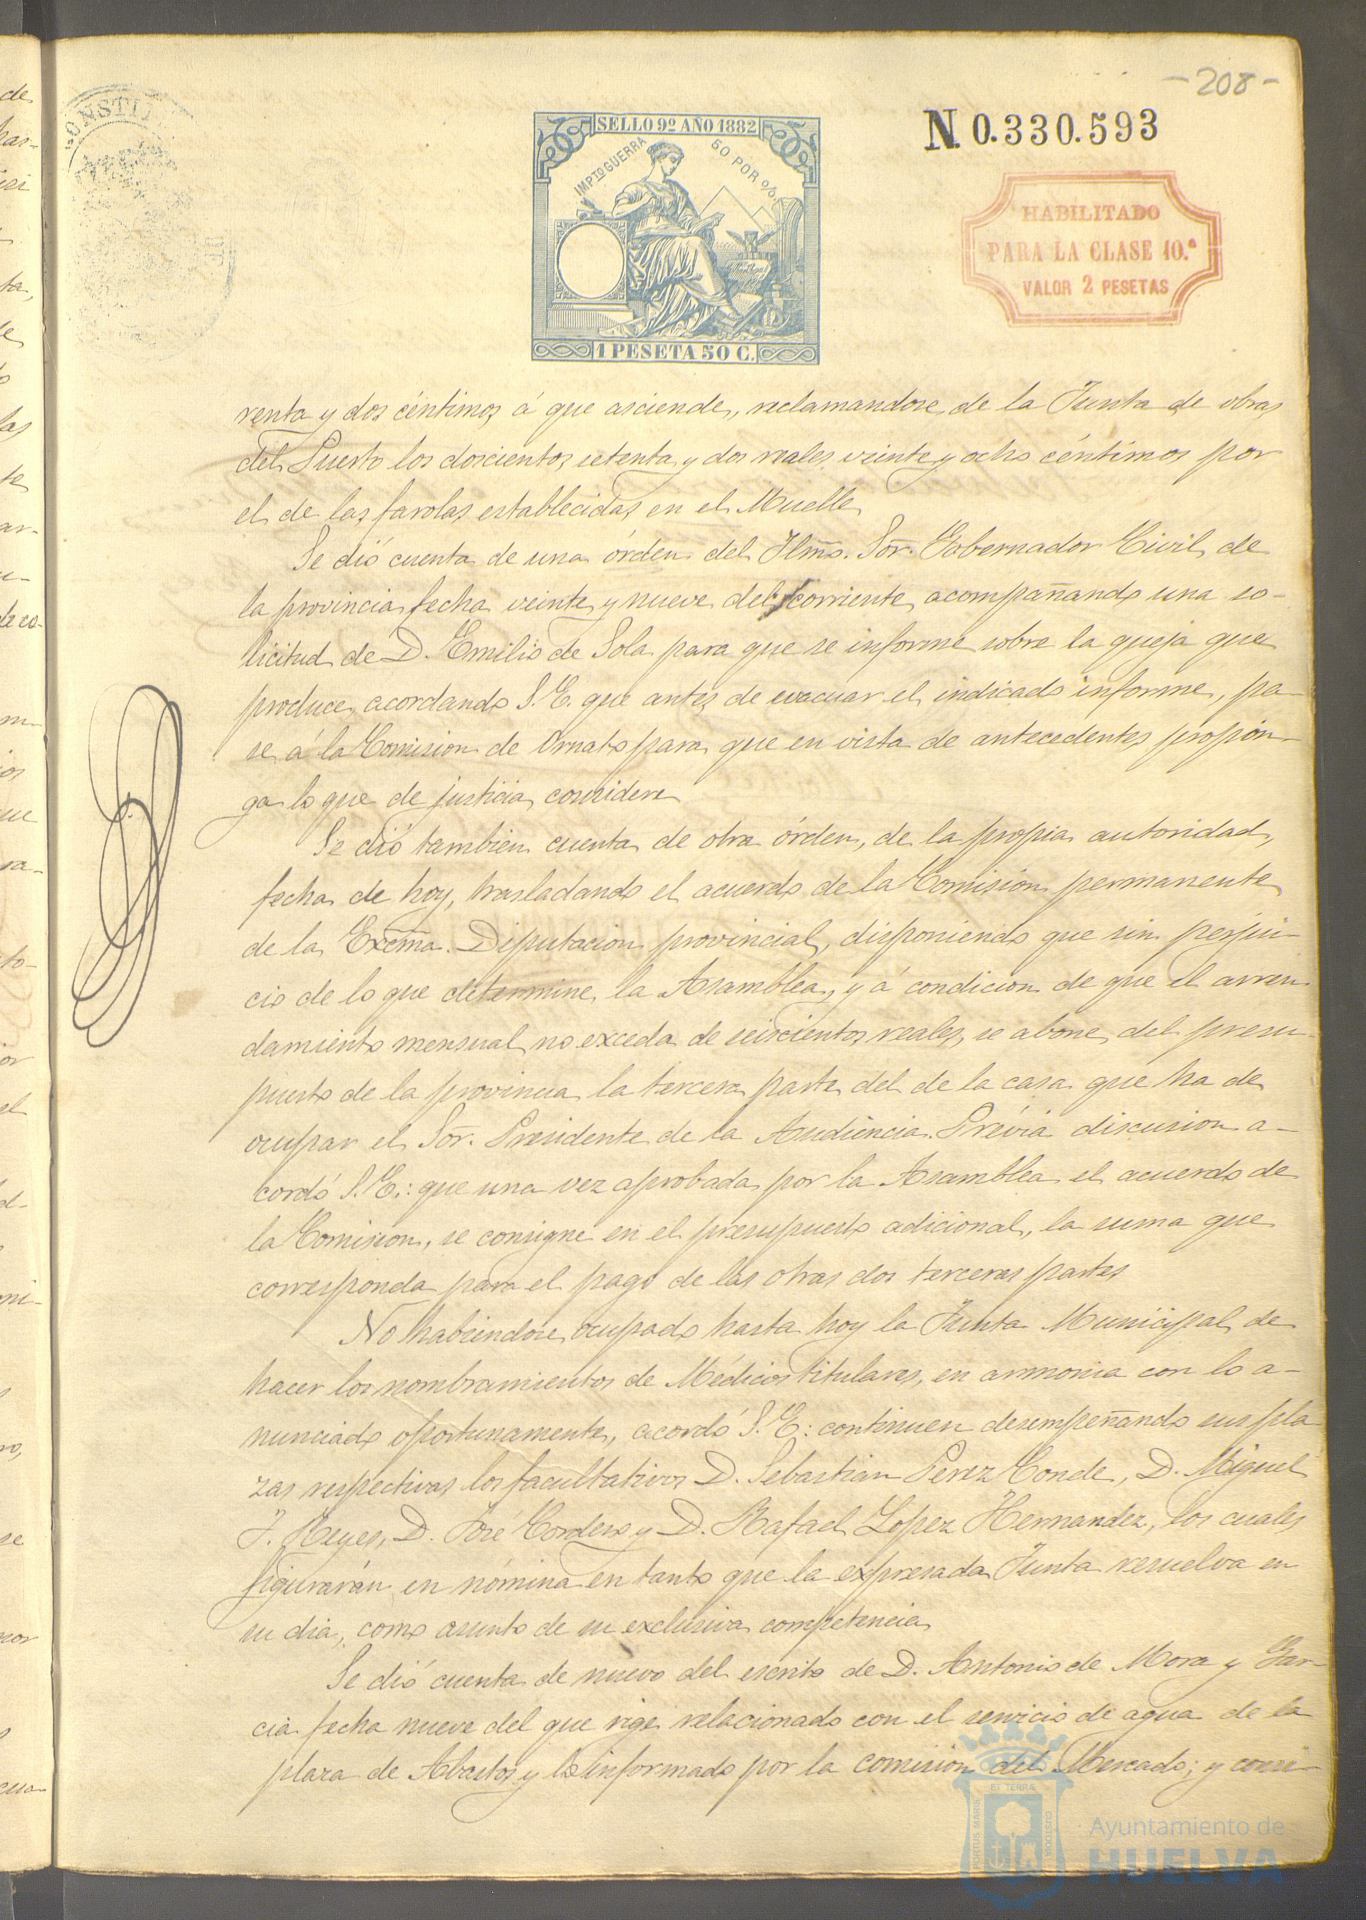 - 208 -
CONSTIT
SELLO 9º AÑO 1882
IMPTO GUERRA 50 POR %
1 PESETA 50 C.
N. 0.330.593
HABILITADO
PARA LA CLASE 10.ª
VALOR 2 PESETAS
renta y dos céntimos á que asciende, reclamandose de la Junta de obras
del Puerto los doscientos setenta y dos reales veinte y ocho céntimos por
el de las farolas establecidas en el Muelle
Se dió cuenta de una órden del Ilmo. Sor. Gobernador Civil de
la provincia fecha veinte y nueve del corriente acompañando una so-
licitud de D. Emilio de Sola para que se informe sobre la queja que
produce, acordando S.E. que antes de evacuar el indicado informe, pa-
se á la Comision de Ornato para que en vista de antecedentes propon-
ga lo que de justicia considere
Se dió tambien cuenta de otra órden, de la propia autoridad,
fecha de hoy, trasladando el acuerdo de la Comisión permanente
de la Excma. Diputacion provincial, disponiendo que sin perjui-
cio de lo que determine la Asamblea, y á condicion de que el arren
damiento mensual no exceda de seiscientos reales, se abone del presu-
puesto de la provincia la tercera parte del de la casa que ha de
ocupar el Sor. Presidente de la Audiencia. Prévia discusion a-
cordó S.E.: que una vez aprobada por la Asamblea el acuerdo de
la Comision, se consigne en el presupuesto adicional, la suma que
corresponda para el pago de las otras dos terceras partes
No habiendose ocupado hasta hoy la Junta Municipal de
hacer los nombramientos de Médicos titulares, en armonia con lo a-
nunciado oportunamente, acordó S.E: continuen desempeñando sus pla
zas respectivas los facultativos D. Sebastian Perez Conde, D. Miguel
J. Reyes, D. José Cordero y D. Rafael Lopez Hernandez, los cuales
figurarán en nómina en tanto que la expresada Junta resuelva en
su dia, como asunto de su exclusiva competencia
Se dió cuenta de nuevo del escrito de D. Antonio de Mora y Gar-
cia fecha nueve del que rige relacionado con el servicio de agua de la
plaza de Abastos y lo informado por la comision del Mercado; y consi-
PORTUS MARIS
ET TERRÆ
CUSTODIA
Ayuntamiento de
HUELVA